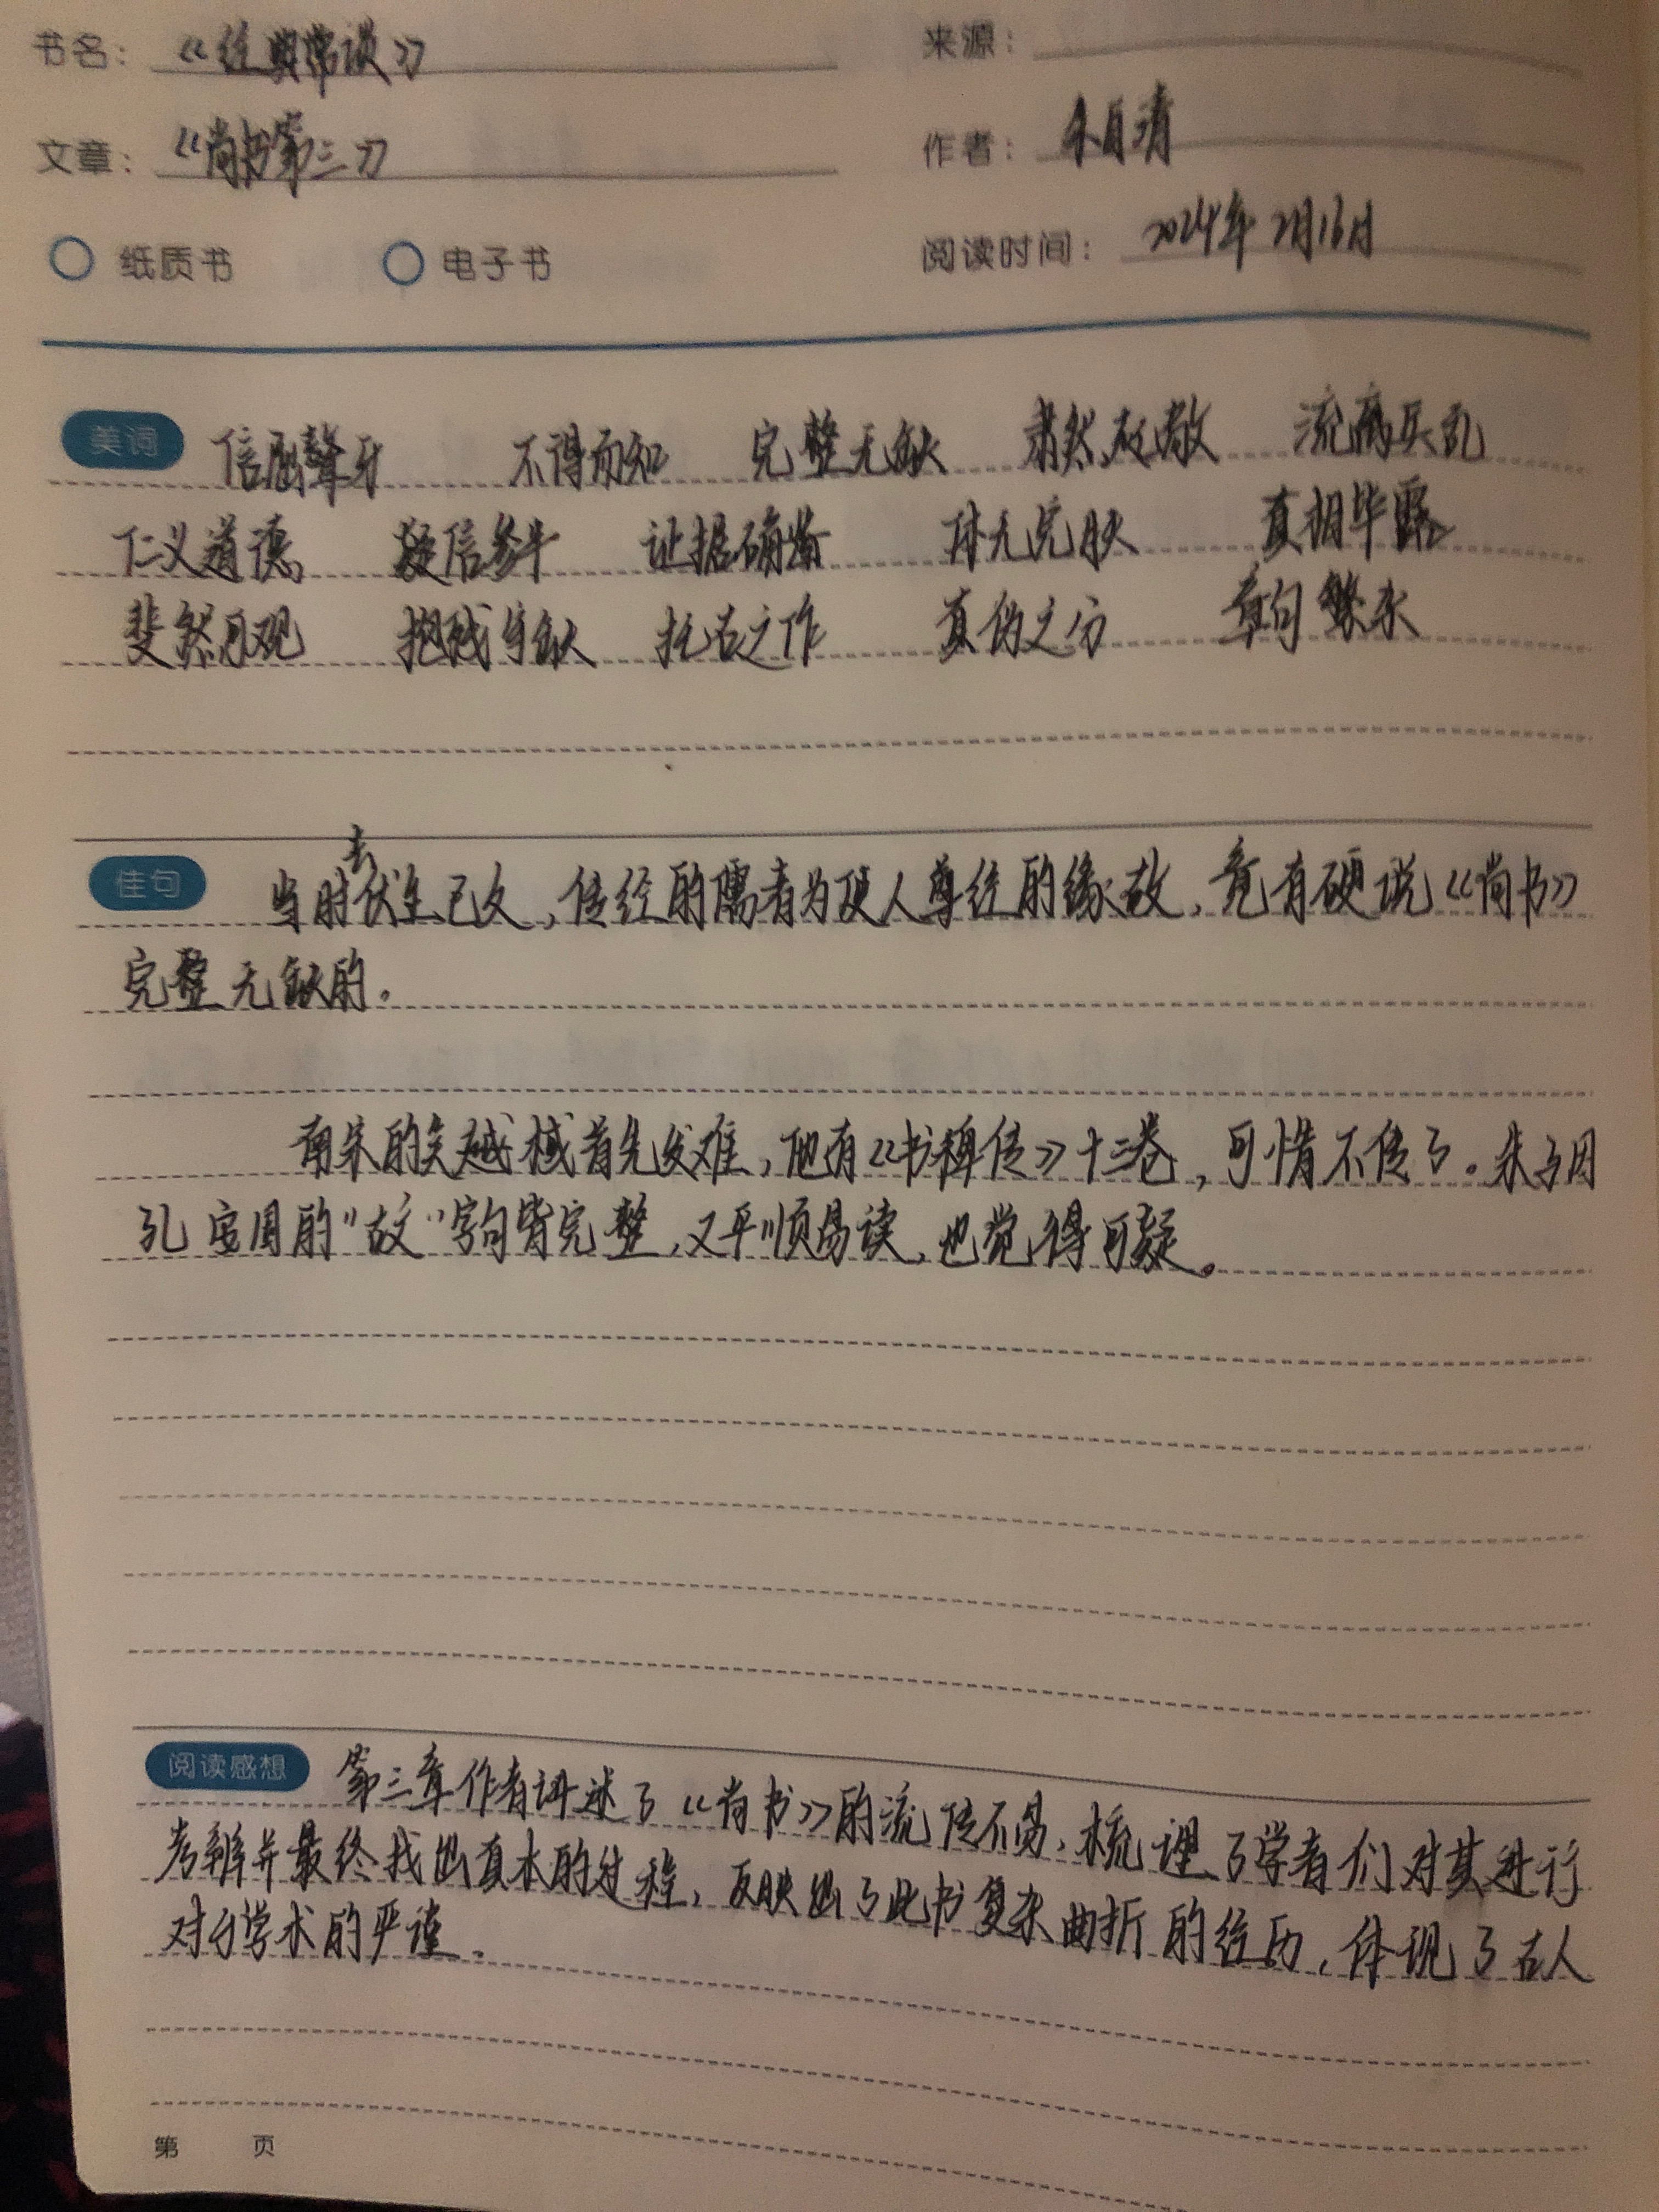 书名： 《经典常谈》 来源：
文章： 《尚书第三》 作者： 朱自清
纸质书 电子书 阅读时间： 2024年2月16日
美词 佶屈聱牙 不得而知 完整无缺 肃然起敬 流离兵乱
仁义道德 疑信参半 证据确凿 体无完肤 真相毕露
斐然可观 抱残守缺 托名之作 真伪之分 章句繁杂
去
佳句 当时伏生已久，传经的儒者为使人尊经的缘故，竟有硬说《尚书》
完整无缺的。
南宋的吴越棫首先发难，他有《书稗传》十三卷，可惜不传了。朱子因
孔安国的“古文”字句皆完整，又平顺易读，也觉得可疑。
阅读感想 第三章作者讲述了《尚书》的流传不易，梳理了学者们对其进行
考辨并最终找出真本的过程，反映出了此书复杂曲折的经历，体现了古人
对于学术的严谨。
第 页